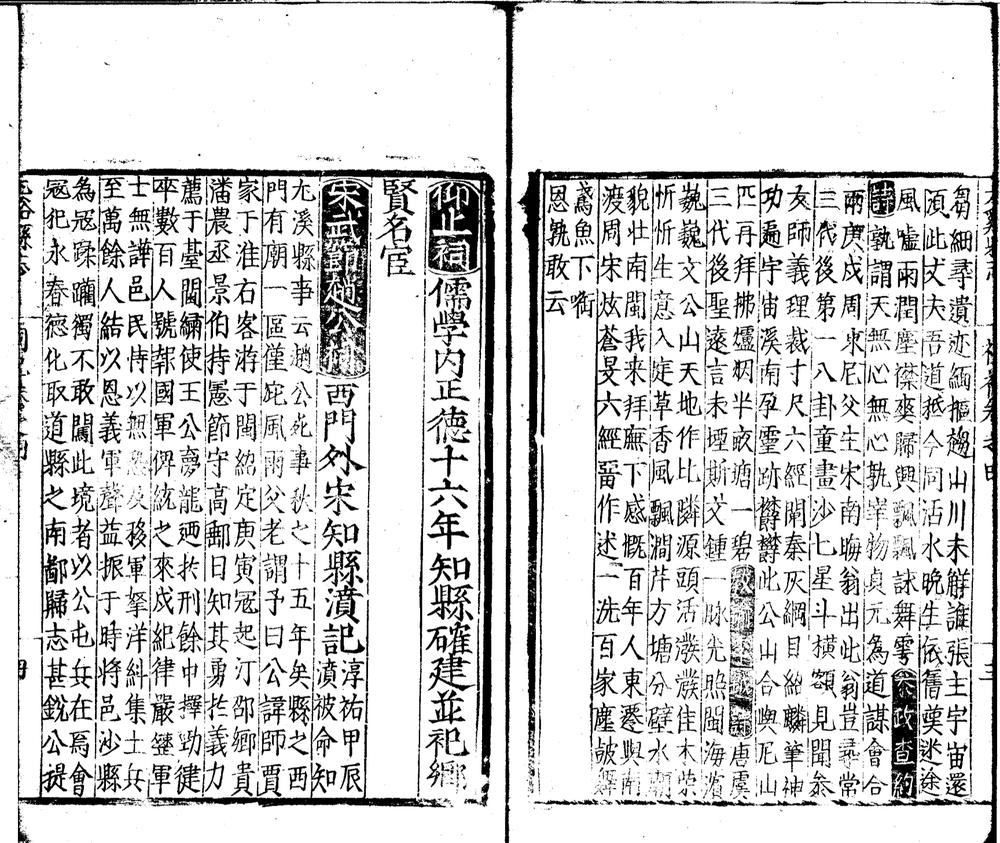 芻細尋遺迹緬摳趨山川未觧誰張主宇宙還
湏此丈夫吾道秪今同活水晩生依舊奠迷途
風嘘雨潤塵襟爽歸興飄飄詠舞雩 叅政查約
詩孰謂天無心無心孰宰物貞元為道謀會合
兩庚戌周東尼父生宋南晦翁出此翁豈尋常
三代後第一八卦童畫沙七星斗橫額見聞參
友師義理裁寸尺六經開秦灰綱目絕麟筆神
功遍宇宙溪南孕靈跡欝欝此公山合與尼山
匹再拜拂爐烟半畝塘一碧 唐虞
三代後聖遠言未堙斯文鍾一脉光照閩海濱
巍巍文公山天地作比隣源頭活潑潑佳木榮
忻忻生意入庭草香風飄澗芹方塘分璧水廟
貌壯南閩我来拜廡下感慨百年人東遷與南
渡周宋炫蒼旻六經畱作述一洗百家塵皷舞
鳶魚下啣
恩孰敢云
仰止祠 儒學内正德十六年知縣確建並祀鄉
賢名宦
宋武節趙公祠 西門外宋知縣濆記 淳祐甲辰濆被命知
尤溪縣事云趙公死事秋之十五年矣縣之西
門有廟一區僅庇風雨父老謂予曰公諱師賈
家于淮右客游于閩紹定庚寅冦起汀邵鄉貴
潘農丞景伯持憲節守高郵日知其勇扵義力
薦于臺閫繡使王公夢龍廼扵刑餘中擇勁健
卒數百人號郭國軍俾統之來戍紀律嚴軍
士無譁邑民恃以無恐及移軍拏洋紏集土兵
至萬餘人結以恩義軍聲益振于時將邑沙縣
為冦蹂躪獨不敢闖此境者以公屯兵在焉會
冦犯永春德化取道縣之南鄙歸志甚銳公提